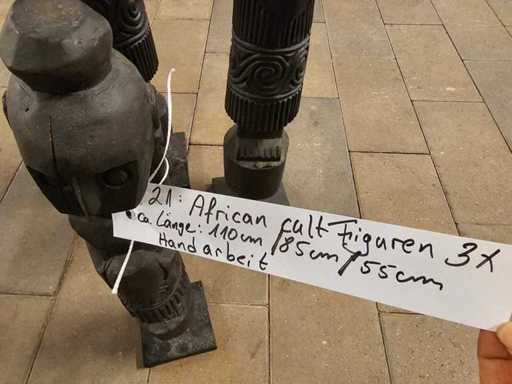 21: African cult Figuren 3x
ca. Länge: 110cm/85cm/55cm
Handarbeit